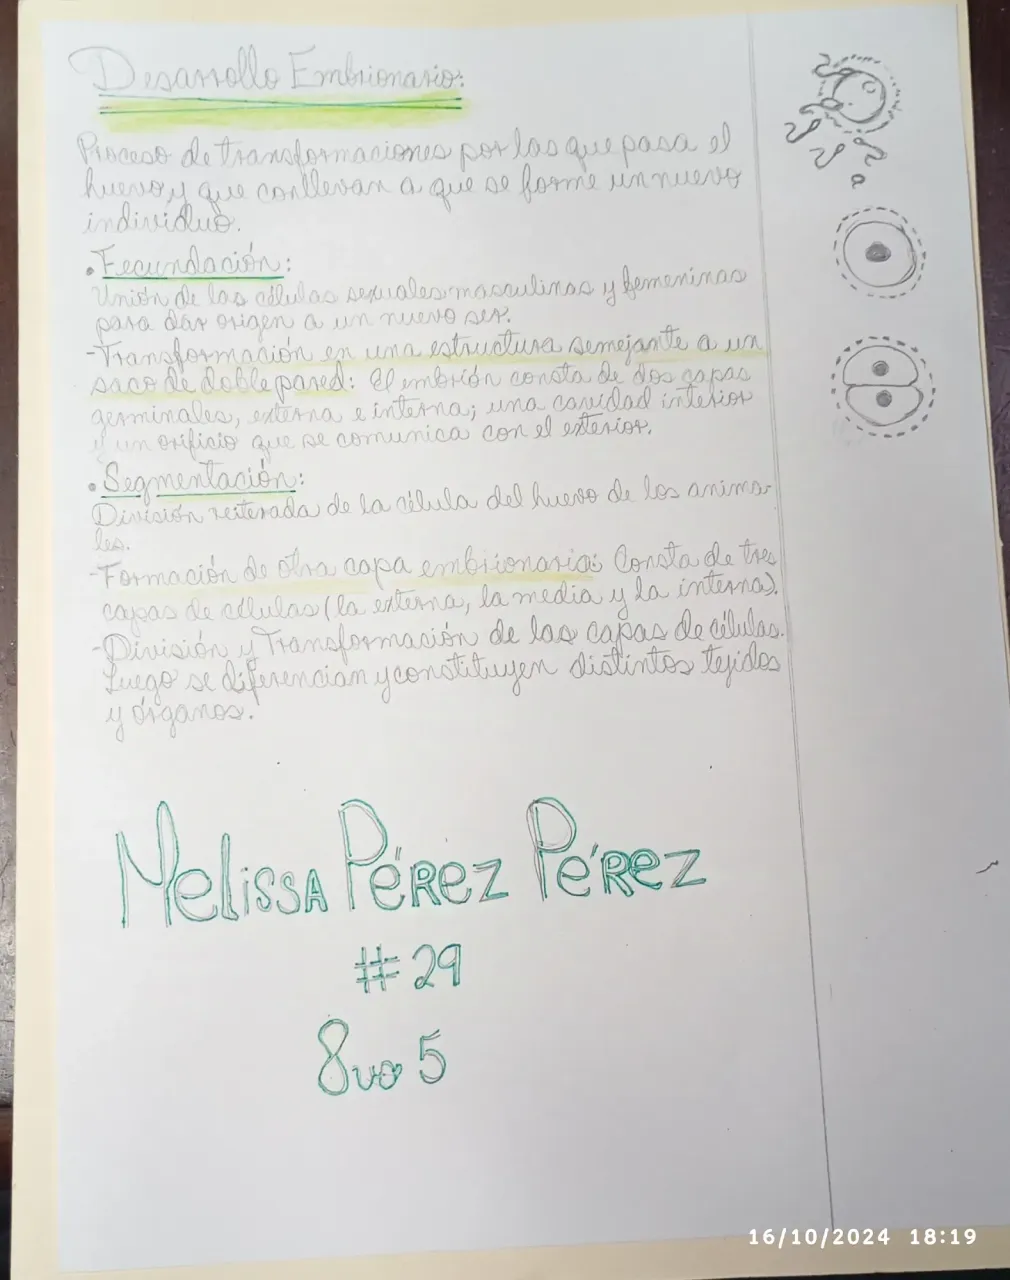 Desarrollo Embrionario:
Proceso de transformaciones por las que pasa el
huevo y que conllevan a que se forme un nuevo
individuo.
• Fecundación:
Unión de las células sexuales masculinas y femeninas
para dar origen a un nuevo ser.
-Transformación en una estructura semejante a un
saco de doble pared: El embrión consta de dos capas
germinales, externa e interna; una cavidad interior
y un orificio que se comunica con el exterior.
• Segmentación:
División reiterada de la célula del huevo de los anima-
les.
-Formación de otra capa embrionaria: Consta de tres
capas de células (la externa, la media y la interna).
-División y Transformación de las capas de células.
Luego se diferencian y constituyen distintos tejidos
y órganos.
a
Melissa Pérez Pérez
#29
8vo 5
16/10/2024 18:19